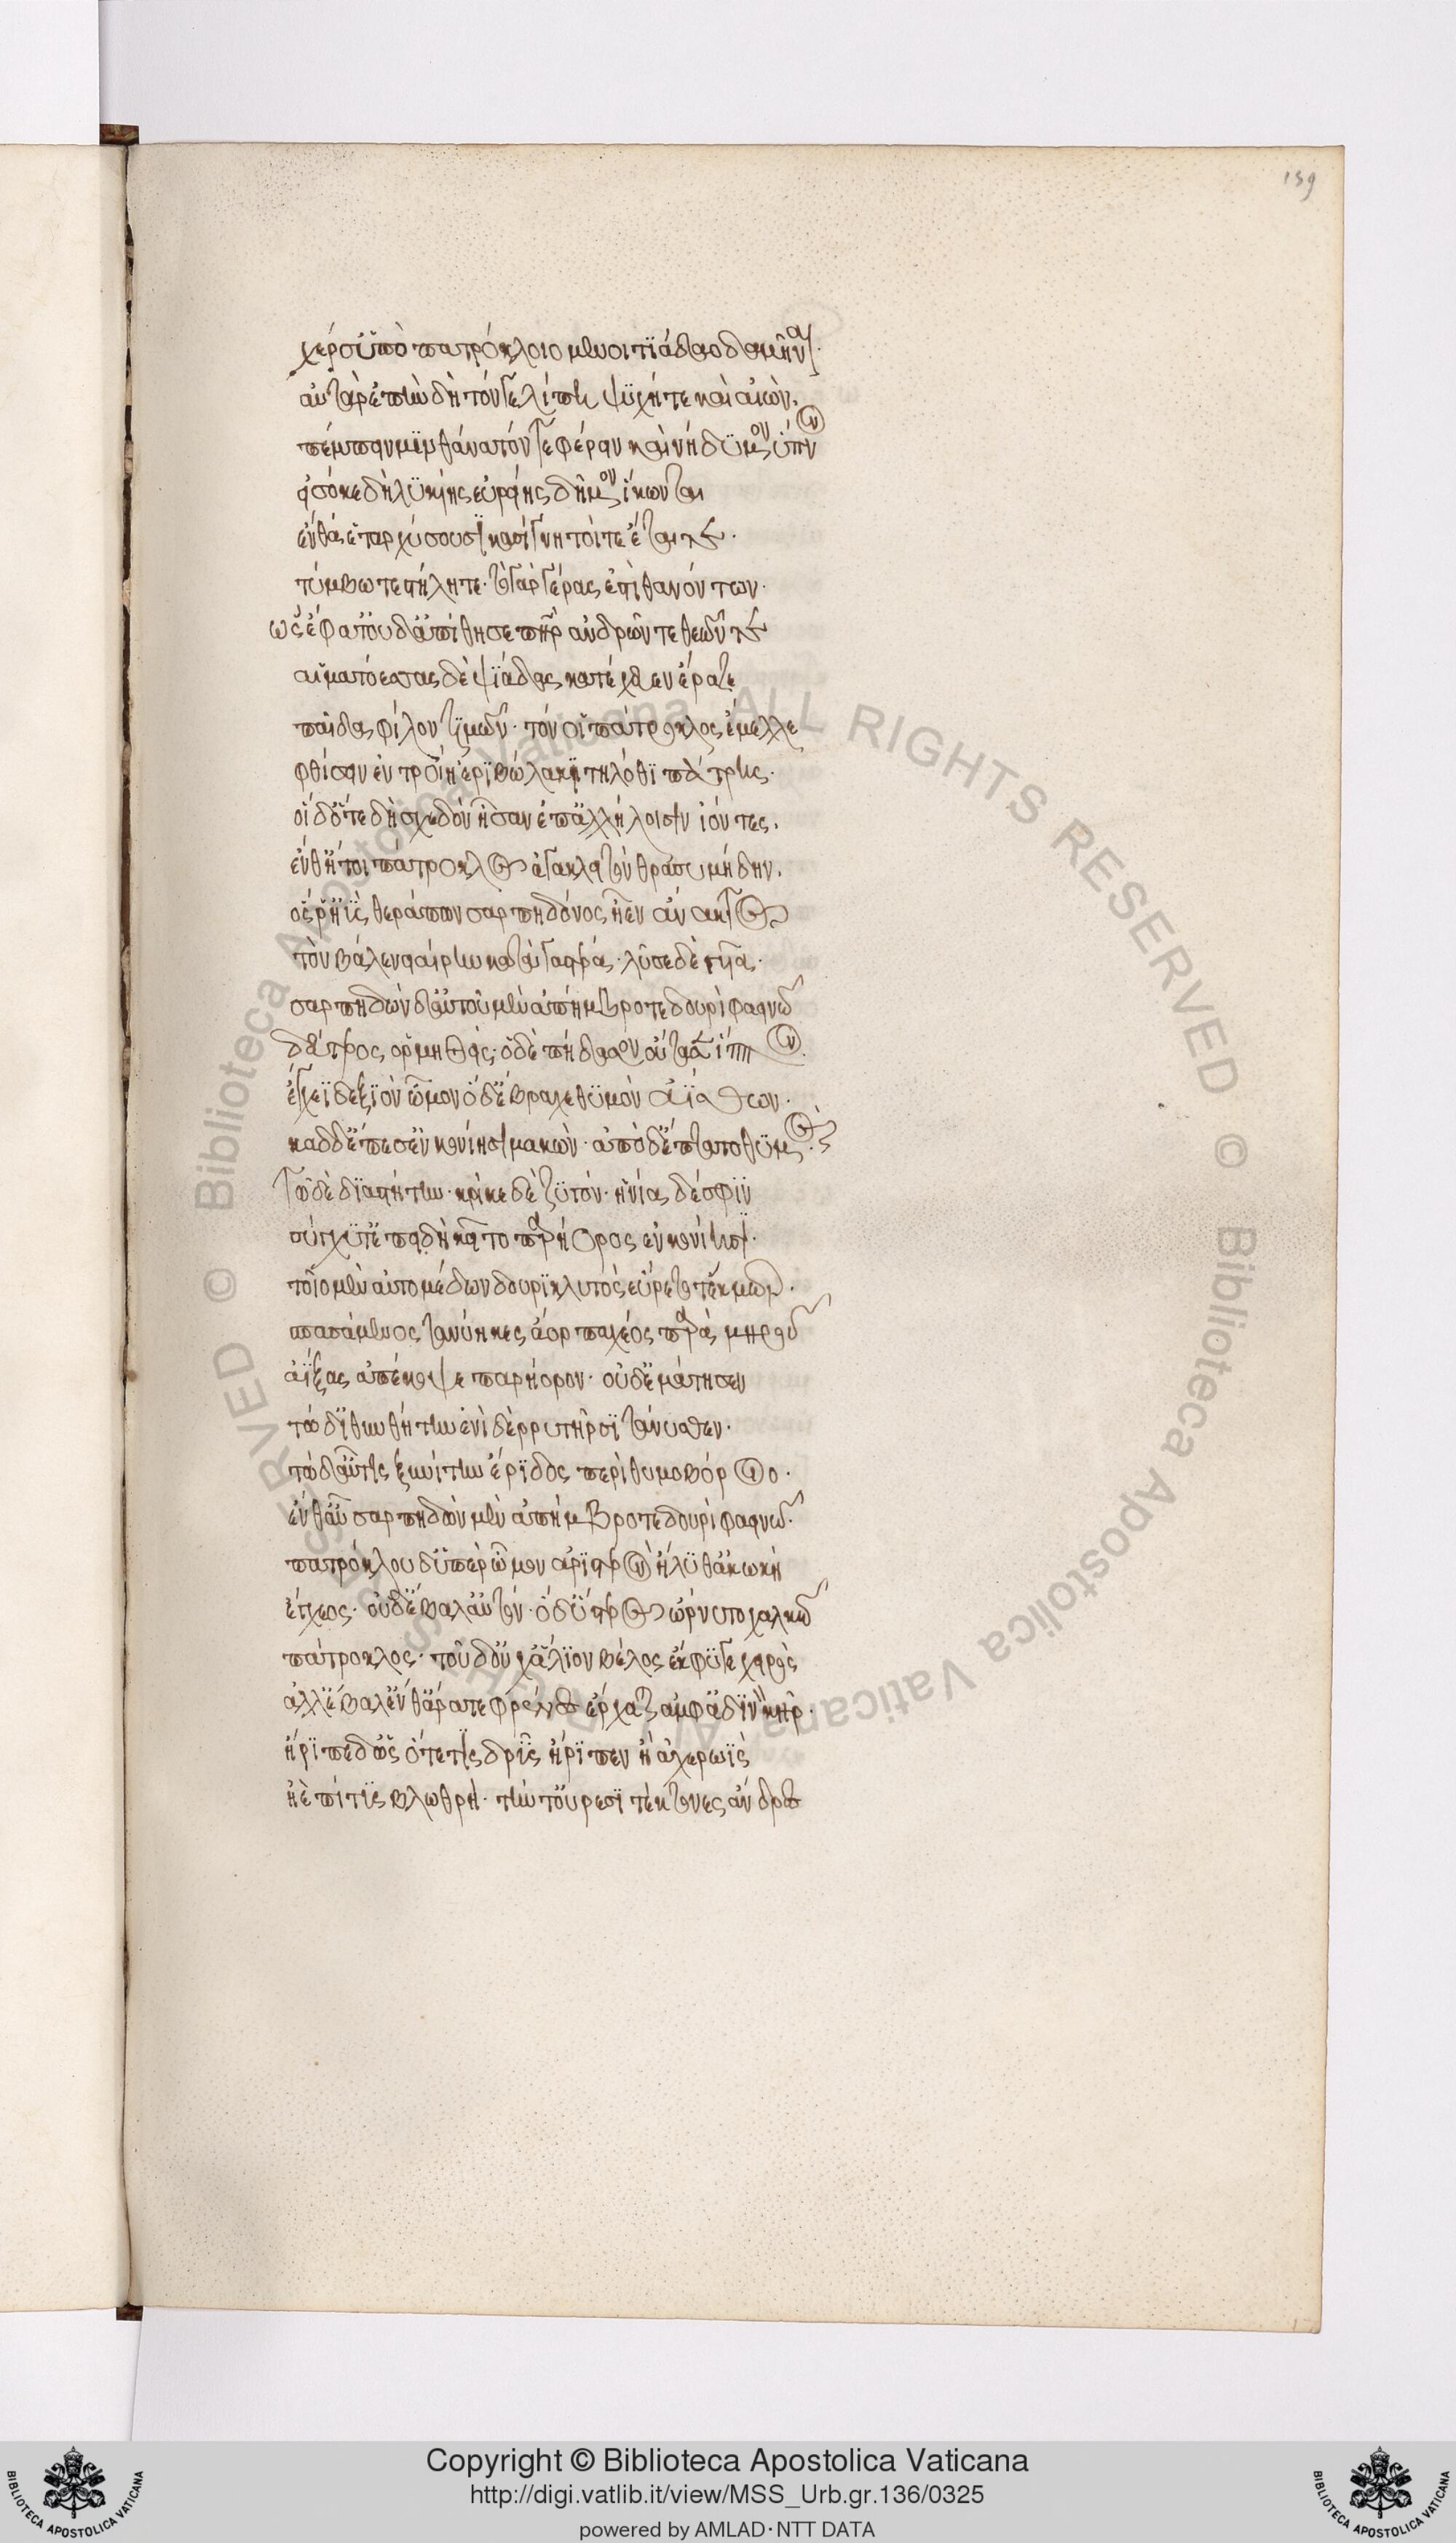 159
χέρσ' ὕπὸ πατρόκλοιο μενοιτϊάδαο δαμῆναι.
αὐτὰρ ἐπὴν δὴ τόνγε λίπῃ ψϋχή τε καὶ αἰὼν.
πέμπειν μϊν θάνατόν τε φέρειν καὶ νήδϋμον ὕπνον
εἰσόκε δὴ λϋκίης εὐρείης δῆμον ἵκωνται
ἔνθά ἑ ταρχύσουσϊ κασίγνητοί τε ἔται τε.
τύμβω τε στήλη τε. τὸ γὰρ γέρας ἐστὶ θανόντων.
ὣς ἔφατ' οὐδ' ἀπίθησε πατὴρ ἀνδρῶν τε θεῶν τε
αἱματόεσσας δὲ ψϊάδας κατέχευεν ἔραζε
παῖδα φίλον τϊμῶν. τόν οἱ πάτροκλος ἔμελλε
φθίσειν ἐν τροίη ἐρϊβώλακϊ τηλόθϊ πάτρης.
οἱ δ' ὅτε δὴ σχεδὸν ἦσαν ἐπ' ἀλλήλοισϊν ἰόντες.
ἔνθ' ἤτοι πάτροκλος ἀγακλειτὸν θρασυμήδην.
ὅς ῥ' ἠῢς θεράπων σαρπηδόνος ἦεν ἄνακτος
τὸν βάλε νείαιραν κατὰ γαστέρα. λῦσε δὲ γυῖα.
σαρπηδὼν δ' αὐτοῦ μὲν ἀπήμβροτε δουρὶ φαεινῶ
δεύτερος ὁρμηθείς. ὁ δὲ πήδασον οὔτασεν ἵππον
ἔγχεϊ δεξϊὸν ὦμον ὁ δ' ἔβραχε θϋμὸν ἀΐσθων.
καδδ' ἔπεσ' ἐν κονίησϊ μακὼν. ἀπὸ δ' ἔπτατο θϋμός.
τὼ δὲ δϊαστήτην. κρίκε δὲ ζϋγόν. ἡνία δέ σφϊν
σύγχϋτ' ἐπειδὴ κεῖτο παρήορος ἐν κονίησϊ.
τοῖο μὲν αὐτομέδων δουρϊκλυτὸς εὕρετο τέκμωρ.
σπασάμενος τανύηκες ἄορ παχέος παρὰ μηροῦ
ἀΐξας ἀπέκοψε παρήορον. οὐδ' ἐμάτησεν
τὼ δ' ἰθυνθήτην ἐνὶ δὲ ῥρυτῆρσϊ τάνυσθεν.
τὼ δ' αὖτις ξυνίτην ἔρϊδος περὶ θυμοβόροιο.
ἔνθ' αὖ σαρπηδὼν μὲν ἀπήμβροτε δουρὶ φαεινῶ.
πατρόκλου δ' ὑπὲρ ὦμον ἀρϊστερὸν ἤλϋθ' ἀκωκὴ
ἔγχεος. οὐδ' ἔβαλ' αὐτόν. ὁ δ' ὕστερος ὤρνυτο χαλκῶ
πάτροκλος. τοῦ δ' οὐχ ἅλϊον βέλος ἔκφϋγε χειρὸς
ἀλλ' ἔβαλ' ἔνθ' ἄρα τε φρένες ἔρχατ' ἀμφ' ἀδϊνὸν κῆρ.
ἤρϊπε δ' ὡς ὅτε τϊς δρῦς ἤρϊπεν ἢ ἀχερωῒς
ἠὲ πίτϊς βλωθρὴ. τήν τ' οὔρεσϊ τέκτονες ἄνδρες
Copyright © Biblioteca Apostolica Vaticana
http://digi.vatlib.it/view/MSS_Urb.gr.136/0325
powered by AMLAD·NTT DATA